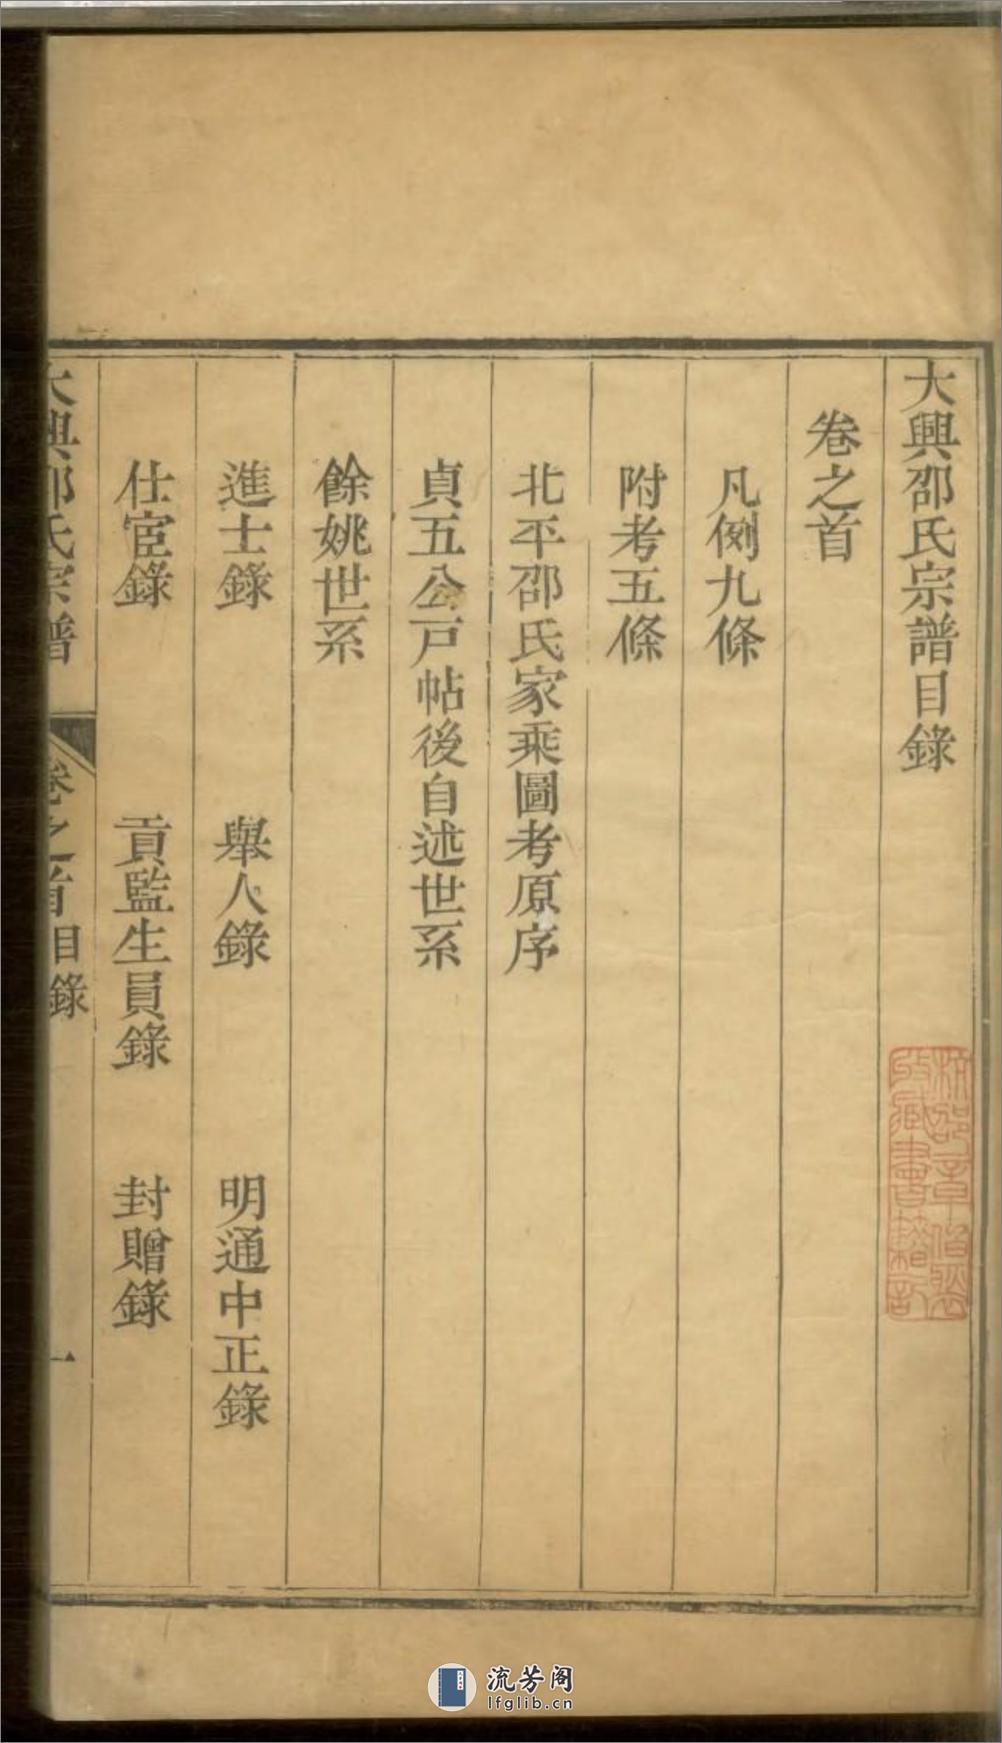 大興邵氏宗譜目錄
卷之首
凡例九條
附考五條
北平邵氏家乘圖考原序
貞五公戸帖後自述世系
餘姚世系
進士錄 舉人錄 明通中正錄
仕宦錄 貢監生員錄 封贈錄
大興邵氏宗譜 卷之首目錄 一
流芳阁
lfglib.cn